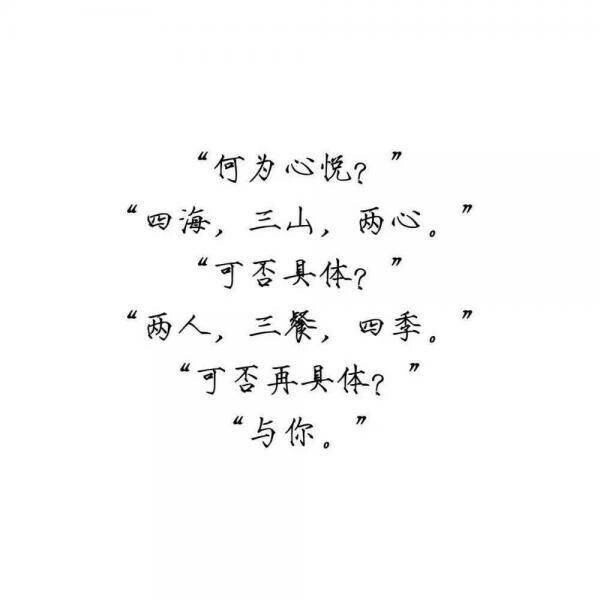 “何为心悦？”
“四海，三山，两心。”
“可否具体？”
“两人，三餐，四季。”
“可否再具体？”
“与你。”